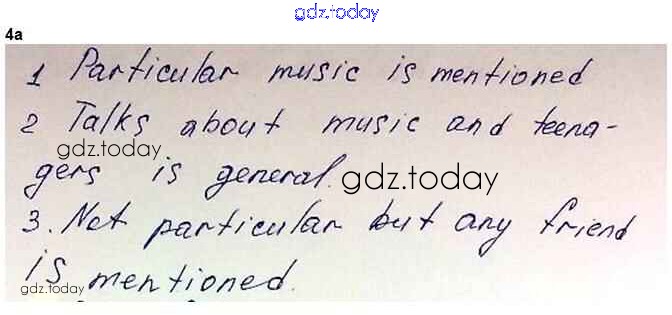 gdz.today
4a
1 Particular music is mentioned
2 Talks about music and teena-
gdz.today
gers is general.
gdz.today
3. Not particular but any friend
is mentioned.
gdz.today